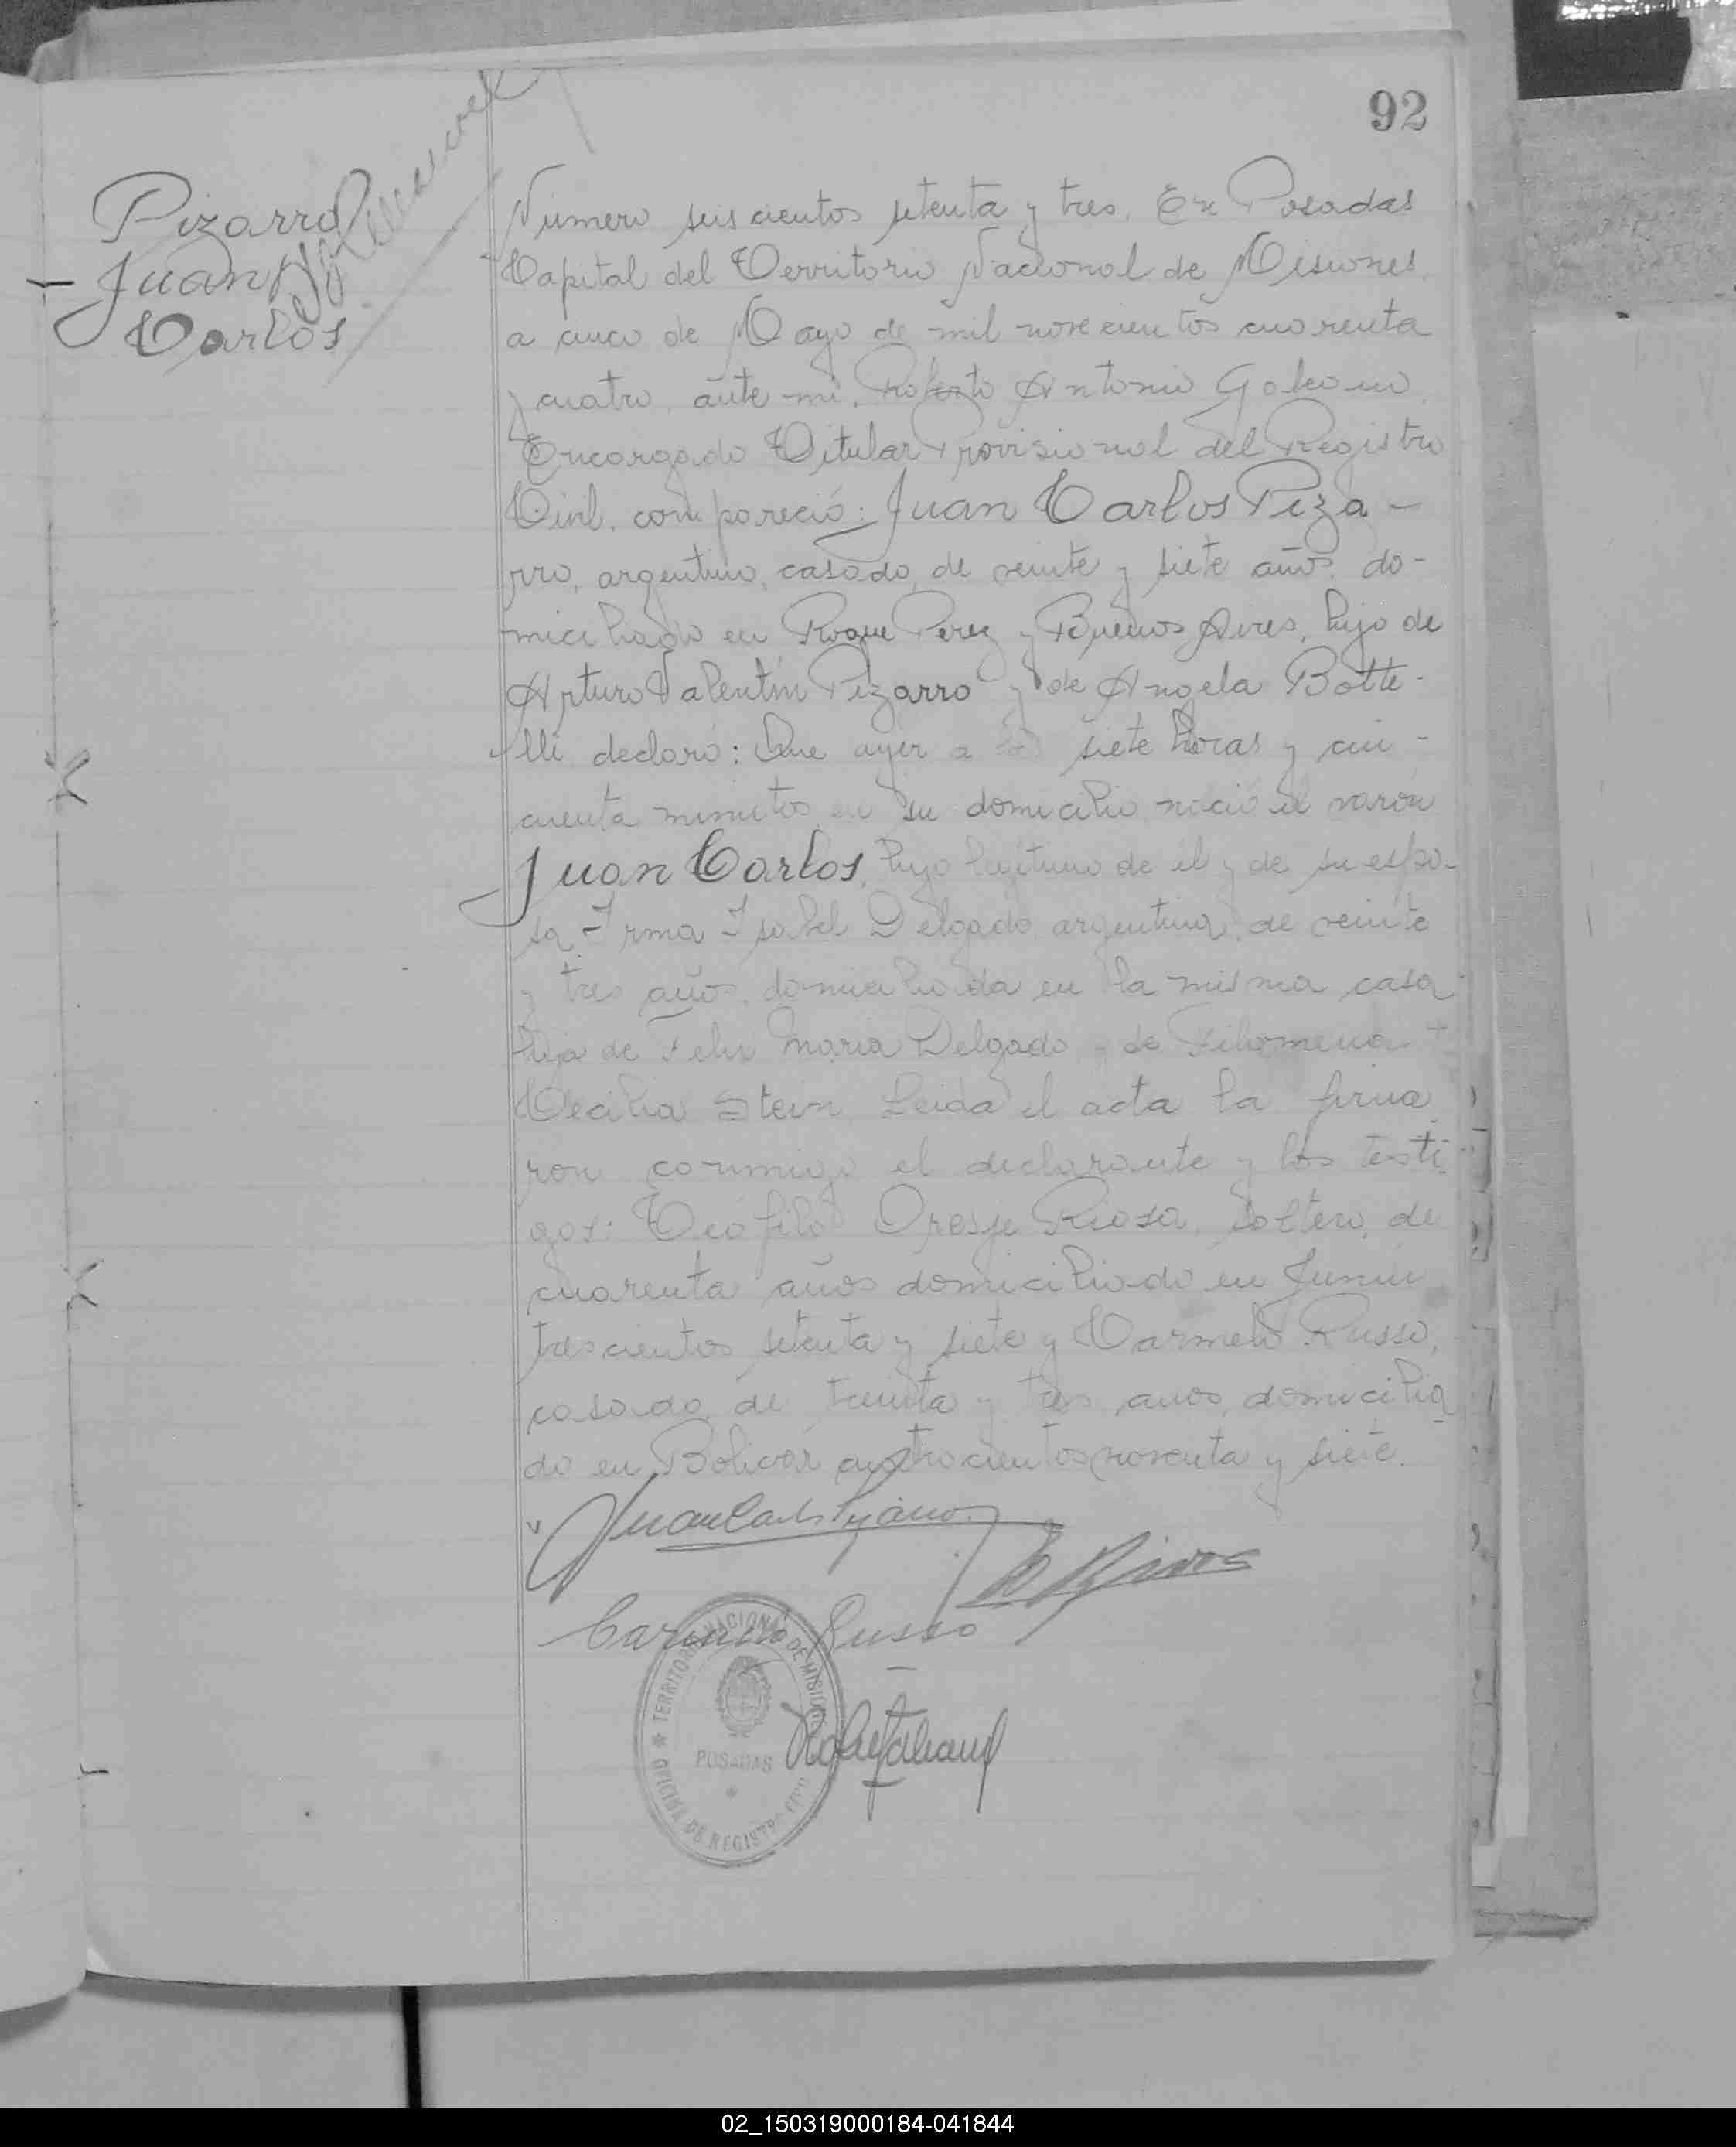 92
Pizarro
Juan
Carlos
Número seiscientos setenta y tres. En Posadas
Capital del Territorio Nacional de Misiones
a cinco de Mayo de mil novecientos cuarenta
y cuatro, ante mi, Roberto Antonio Galeano,
Encargado Titular Provisional del Registro
Civil, compareció: Juan Carlos Piza-
rro, argentino, casado, de veinte y siete años, do-
miciliado en Roque Perez y Buenos Aires, hijo de
Arturo Valentín Pizarro y de Angela Botte-
lli declaró: Que ayer a las siete horas y cin-
cuenta minutos en su domicilio nació el varón
Juan Carlos, hijo legítimo de él y de su espo-
sa Irma Isabel Delgado, argentina, de veinte
y tres años, domiciliada en la misma casa
hija de Felix Maria Delgado y de Filomena
Cecilia Stein. Leida el acta la firma
ron conmigo el declarante y los testi-
gos: Teófilo soltero, de
cuarenta años domiciliado en Junín
trescientos setenta y siete y Carmelo Russo,
casado, de treinta y tres años, domicilia
do en Bolivar cuatrocientos noventa y siete.
Juan Carlos Pizarro
Carmelo Russo
TERRITORIO NACIONAL DE MISIONES
POSADAS
OFICINA DE REGISTRO CIVIL
02_150319000184-041844